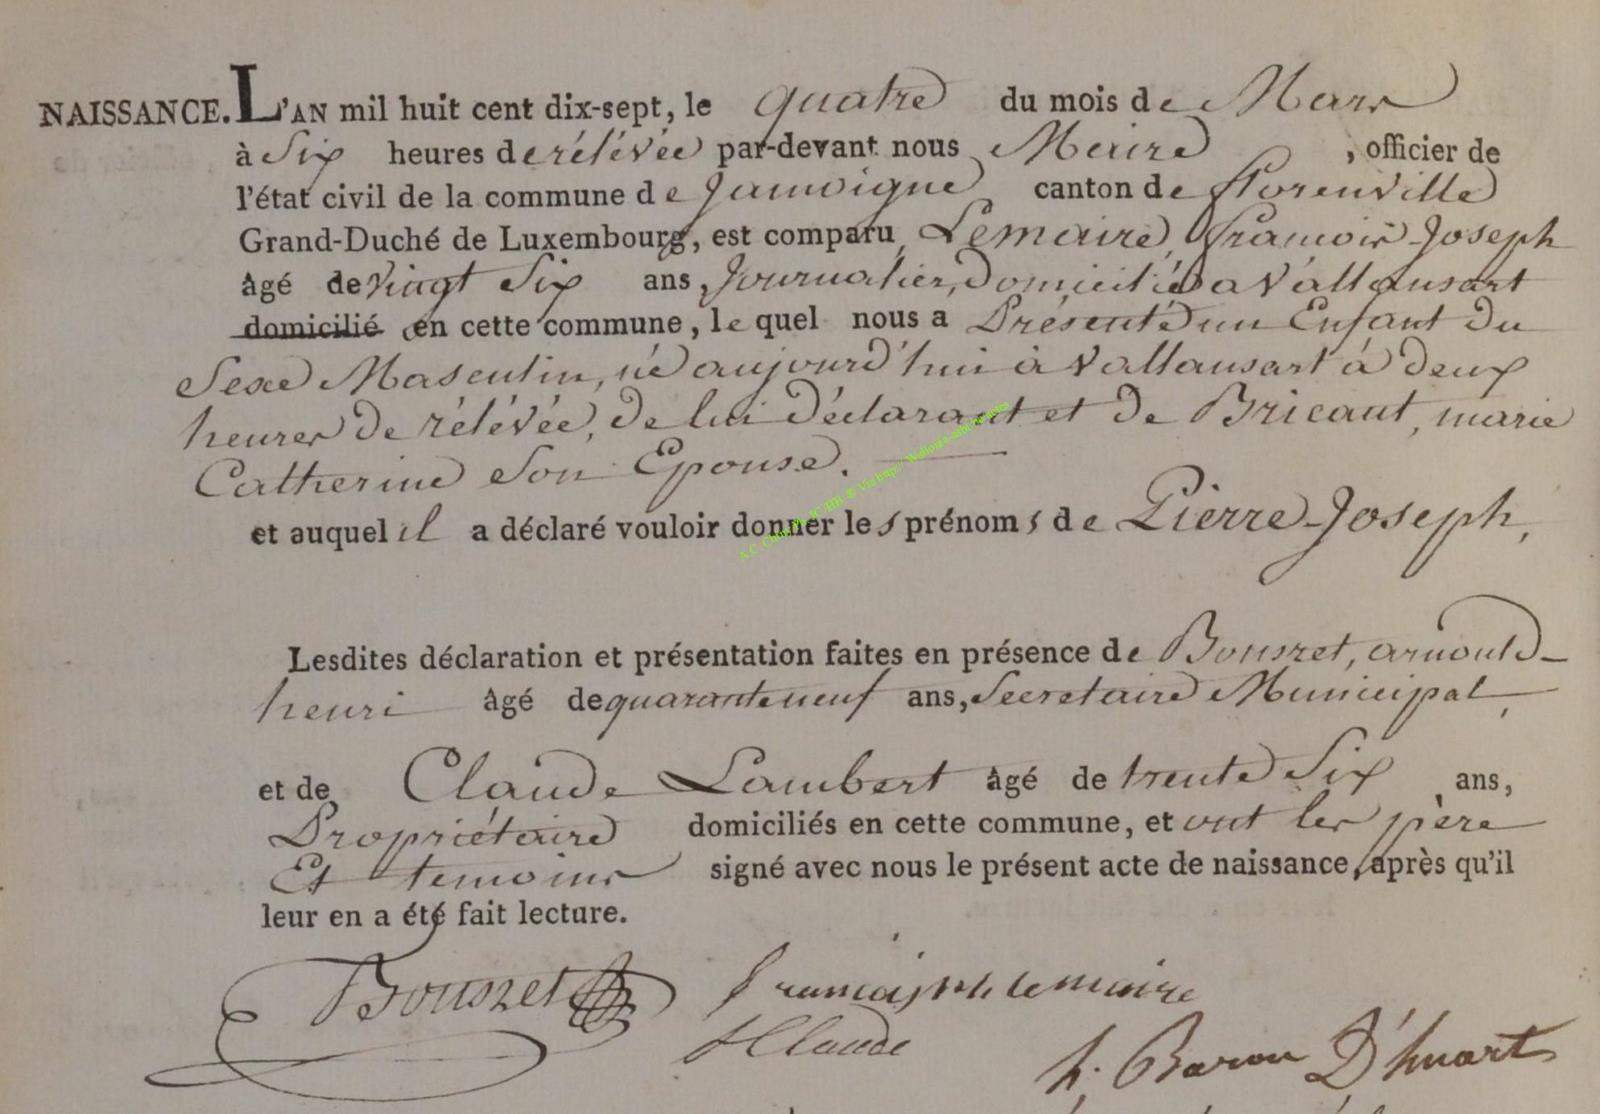 NAISSANCE. L'AN mil huit cent dix-sept, le quatre du mois de Mars
à Six heures de rélévée par-devant nous Maire, officier de
l'état civil de la commune de Jamoigne canton de florenville
Grand-Duché de Luxembourg, est comparu Lemaire, françois-Joseph
âgé de vingt Six ans, Journalier, domicilié a Vallansart
domicilié en cette commune, le quel nous a Présenté un Enfant du
Sexe Masculin, né aujourd'hui à Vallansart à deux
heures de rélévée, de lui déclarant et de Bricaut, marie
Catherine Son Epouse.
et auquel il a déclaré vouloir donner les prénoms de Pierre-Joseph,
Lesdites déclaration et présentation faites en présence de Bouszet, arnould-
henri âgé de quarante neuf ans, Secretaire Municipal,
et de Claude Lambert âgé de trente Six ans,
Propriétaire domiciliés en cette commune, et ont les père
Et temoins signé avec nous le présent acte de naissance, après qu'il
leur en a été fait lecture.
Bouszet francois lemaire
Claude
h. Baron D'huart